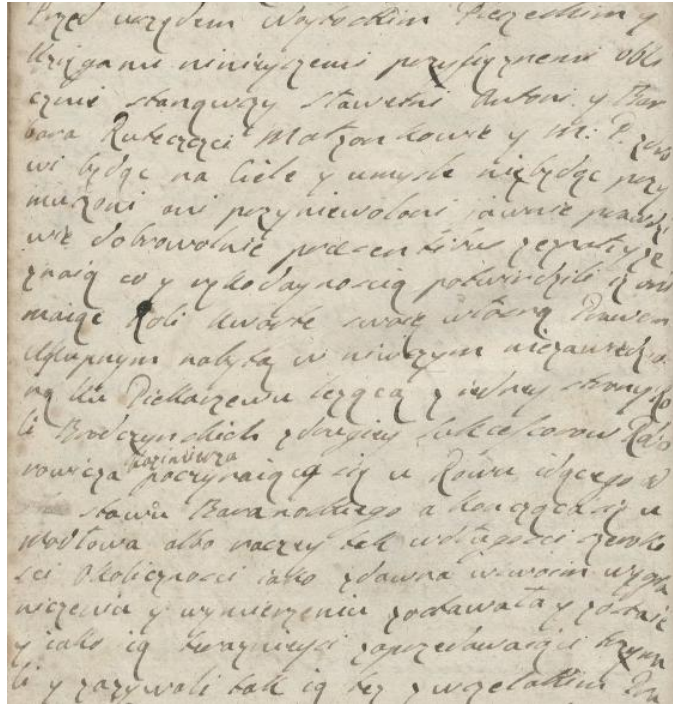 Przed urzędem Woytoskim Pieczeckim y
Xięgami ninieyszemi przysięznemi obli
cznie stanąwszy sławetni Antoni y Bar
bara Ruteczcy Małzonkowie y M: P. zdro
wi będąc na Ciele y umysle niebędąc przy
muszeni ani przyniewoleni jawnie prawdzi
wie dobrowolnie zeznali y ze
znaią co y rękodaynoscią potwierdzili iz oni
maiąc Roli kwartę swoię własną Prawem
Kupnym nabytą w niwczym niezawiedzo
ną ku Piekaczewu lezącą z iedney strony Ro
li Brodczynskich z drugiey Sukcessorow
rowicza Kazimierza poczynaiącą się u Rowu idącego
stawu Baranoskiego a konczącą się u
albo raczey tak w długosci szeroko
sci okolicznosci iako zdawna w swoim wygra
niczeniu y wymierzeniu zostawała y zostaie
y iako ią teraznieysi zaprzedawaiący trzyma
li y zazywali tak ią tez z wszelakim